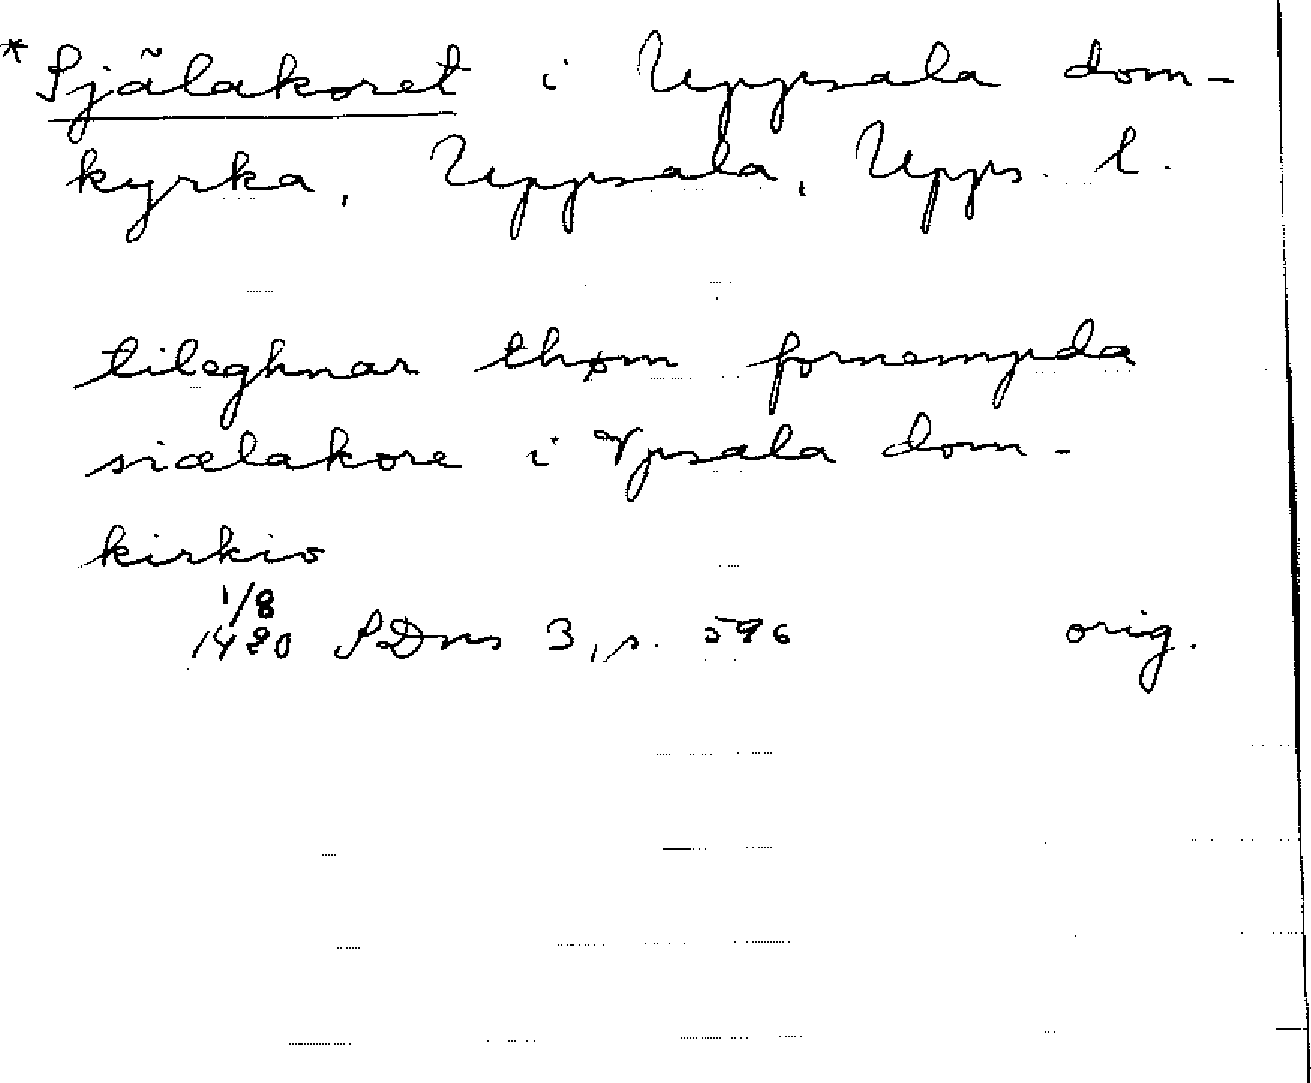 * Själakoret i Uppsala dom-
kyrka, Uppsala, Upps. l.
tileghnar thøm fornempda
siælakore i Vpsala dom-
kirkio
1/8
1420 SDns 3, s. 596 orig.